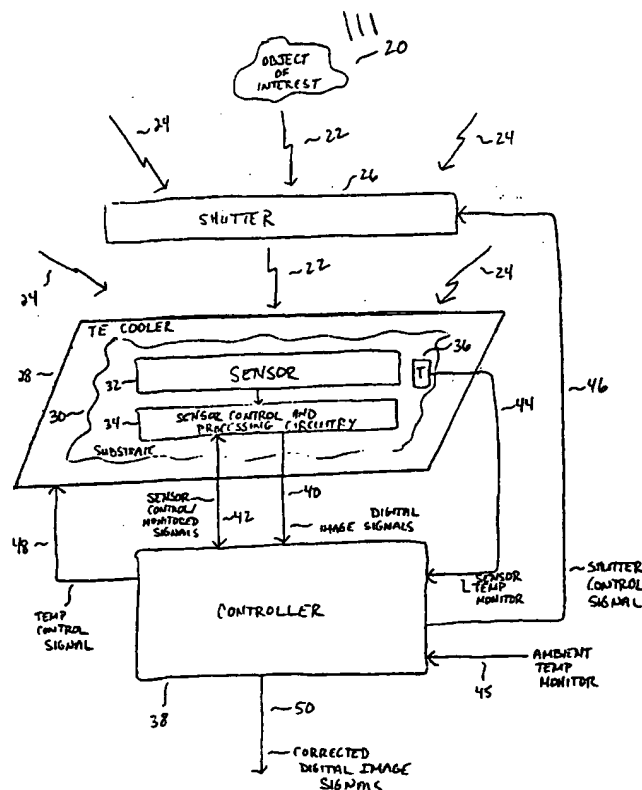 OBJECT
OF
INTEREST
20
24
22
24
26
SHUTTER
22
24
24
TE COOLER
36
28
SENSOR
T
32
30
46
34
SENSOR CONTROL AND
PROCESSING CIRCUITRY
44
SUBSTRATE
SENSOR
CONTROL/
MONITORED
SIGNALS
42
40
DIGITAL
IMAGE SIGNALS
48
TEMP
CONTROL
SIGNAL
CONTROLLER
SENSOR
TEMP
MONITOR
SHUTTER
CONTROL
SIGNAL
AMBIENT
TEMP
MONITOR
45
38
50
CORRECTED
DIGITAL IMAGE
SIGNALS